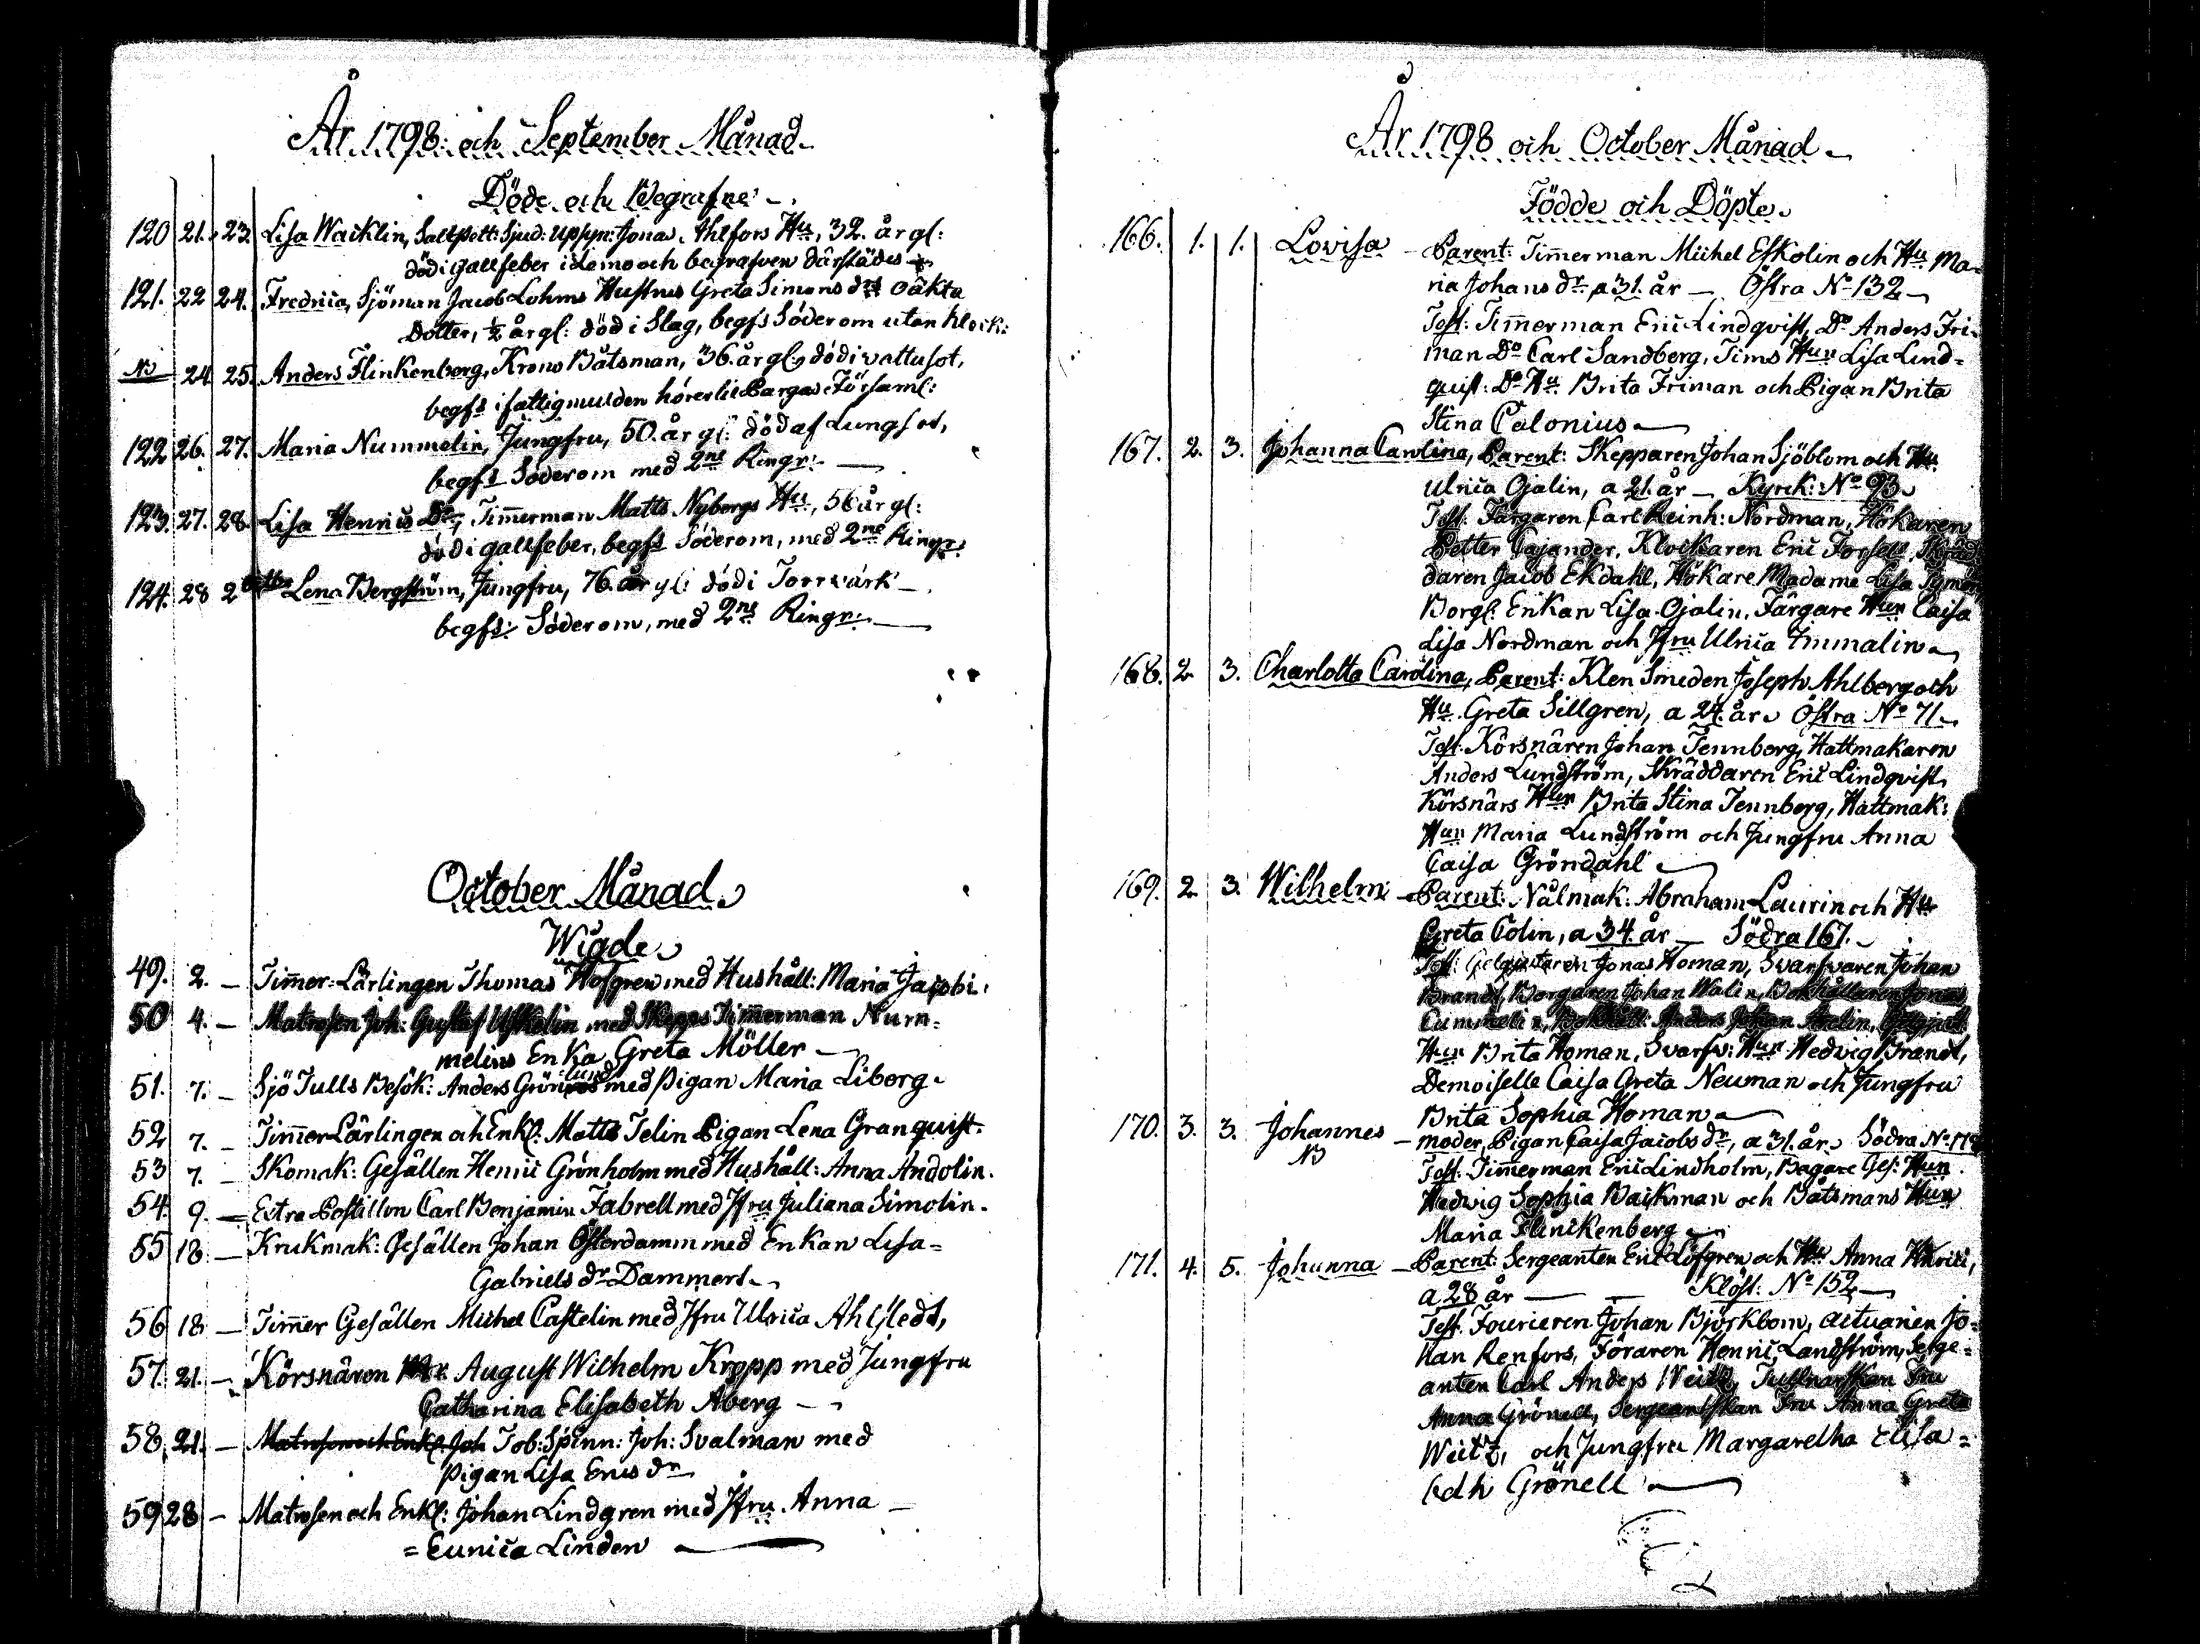 År 1798: och September Månad
Döde och Begrafne
120 21. 23. Lisa Wacklin, Saltpett: Sjud: uppsyn: Jonas Ahlfors Hu, 32. år gl:
död i gallfeber i Lemo och begrafven därstädes
121. 22 24. Fredrica, Sjöman Jacob Lohms Hustrus Greta Simons drs oäkta
Dotter, ½ år gl: död i Slag, begfs Söder om utan klock:
NB 24 25. Anders Flinkenberg, Krono Båtsman, 36. år gl, död i vattusot,
begfs i fattigmulden hörer til Pargas Församl:
122 26. 27. Maria Nummelin, Jungfru, 50. år gl: död af Lungsot,
begfs Söder om med 2ne Ringr:
123. 27. 28. Lisa Henrics Dr, Timmerman Matts Nybergs Hu, 56 år gl:
död i gallfeber, begfs Söder om, med 2ne Ringr:
124. 28 Lena Bergström, Jungfru, 76. år gl: död i Torrvärk
begfs: Söder om, med 2ne Ringr:
October Månad
Wigde
49. 2. Timmer-Lärlingen Thomas Hofgren med Hushåll: Maria Jacobi
50 4. Matrosen Joh: Gustaf med Skepps Timmerman Num-
melins Enka Greta Möller
51. 7. Sjö Tulls Besök: Anders Grönlund med Pigan Maria Liborg
52 7. Timmer Lärlingen och Enkl: Matts Telin Pigan Lena Granquist.
53 7. Skomak: Gesällen Henric Grönholm med Hushåll: Anna Andolin.
54 9. Extra Postillon Carl Benjamin Fabrell med Jfru Juliana Simolin.
55 18 Krukmak: Gesällen Johan Österdamm med Enkan Lisa
Gabriels dr Dammert
56 18 Timmer Gesällen Michel Castelin med Jfru Ulrica Ahlstedt,
57. 21. Körsnären Mr August Wilhelm Kropp med Jungfru
Catharina Elisabeth Åberg
58. 21. Matrosen och Enkl. Joh Tob: Spinn: Joh: Svalman med
Pigan Lisa Erics dr
59 28 Matrosen och Enkl: Johan Lindgren med Jfru Anna
Eunica Linden
År 1798 och October Månad
Födde och Döpte
166. 1. 1. Lovisa Parent: Timmerman Michel Eskolin och Hu Ma-
ria Johans dr, a 31. år Östra No 132
Test: Timmerman Eric Lindqvist, Do Anders Fri-
man Do Carl Sandberg, Tims Hun Lisa Lind-
quist: Do Hu Brita Friman och Pigan Brita
Stina Calonius
167. 2. 3. Johanna Carolina, Parent: Skepparen Johan Sjöblom och Hu
Ulrica Ojalin, a 21. år Kyrck: No 93
Test: Färgaren Carl Reinh: Nordman, Hökaren
Petter Cajander, Klockaren Eric Forsell, Skräd
daren Jacob Ekdahl, Hökare Madame Lisa
Borgl. Enkan Lisa Ojalin, Färgare Hun Caisa
Lisa Nordman och Jfru Ulrica Immalin
168. 2 3. Charlotta Carolina, Parent: Klen Smeden Joseph Ahlberg och
Hu Greta Sillgren, a 24. år Östra No 71
Test: Körsnären Johan Tennberg, Hattmakaren
Anders Lundström, Skräddaren Eric Lindqvist
Körsnärs Hun Brita Stina Tennberg, Hattmak:
Hun Maria Lundström och Jungfru Anna
Caisa Gröndahl
169. 2 3. Wilhelm Parent: Nålmak: Abraham Laurin och Hu
Greta Colin, a 34. år Södra 167.
Test: Gelgjutaren Jonas Homan, Svarfvaren Johan
Brandt, Borgaren Johan Walin, Bokhållaren Jonas
Cummelin, Bokhåll: Anders Johan
Hun Brita Homan, Svarfv: Hun Hedvig Brandt,
Demoiselle Caisa Greta Neuman och Jungfru
Brita Sophia Homan
170. 3. 3. Johannes moder, Pigan Caisa Jacobs dr, a 31. år Södra No
NB Test. Timmerman Eric Lindholm, Bagare Ges: Hun
Hedwig Sophia Backman och Båtsmans Hun
Maria Flinckenberg
171. 4. 5. Johanna Parent: Sergeanten Eric Löfgren och Hu Anna Henrici,
a 28 år Klöst: No 152
Test. Fourieren Johan Björkbom, Actuarien Jo-
han Renfors, Föraren Henric Landström, Serge-
anten Carl Anders Weitz, Fru
Anna Grönell, Sergeantskan Fru Anna Greta
Weitz, och Jungfru Margaretha Elisa-
beth Grönell